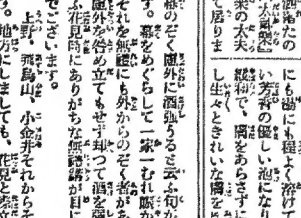 にも湯にも程よく溶け
い芳香の優しい泡にな
緩和で、膚をあらさずに
し生々ときれいな膚を
洒落たの
て居りま
幕のぞく園外に酒強うると云ふ句が
す。幕をめぐらして一家一むれ賑か
それを無禮にも外からのぞく者があ
園外を咎め立てもせず却つて酒を强
ふ花見時にありがちな無禮講が目に
でございます。
上野、飛鳥山、小金井それからそ
す。地方にしましても、花見と